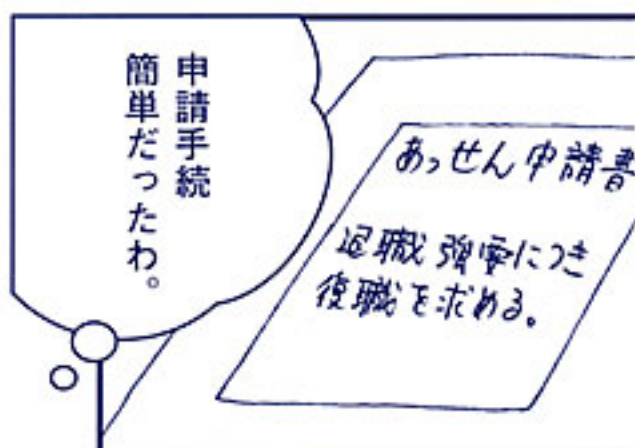 申請手続
簡単だったわ。
あっせん申請書
退職強要につき
復職を求める。